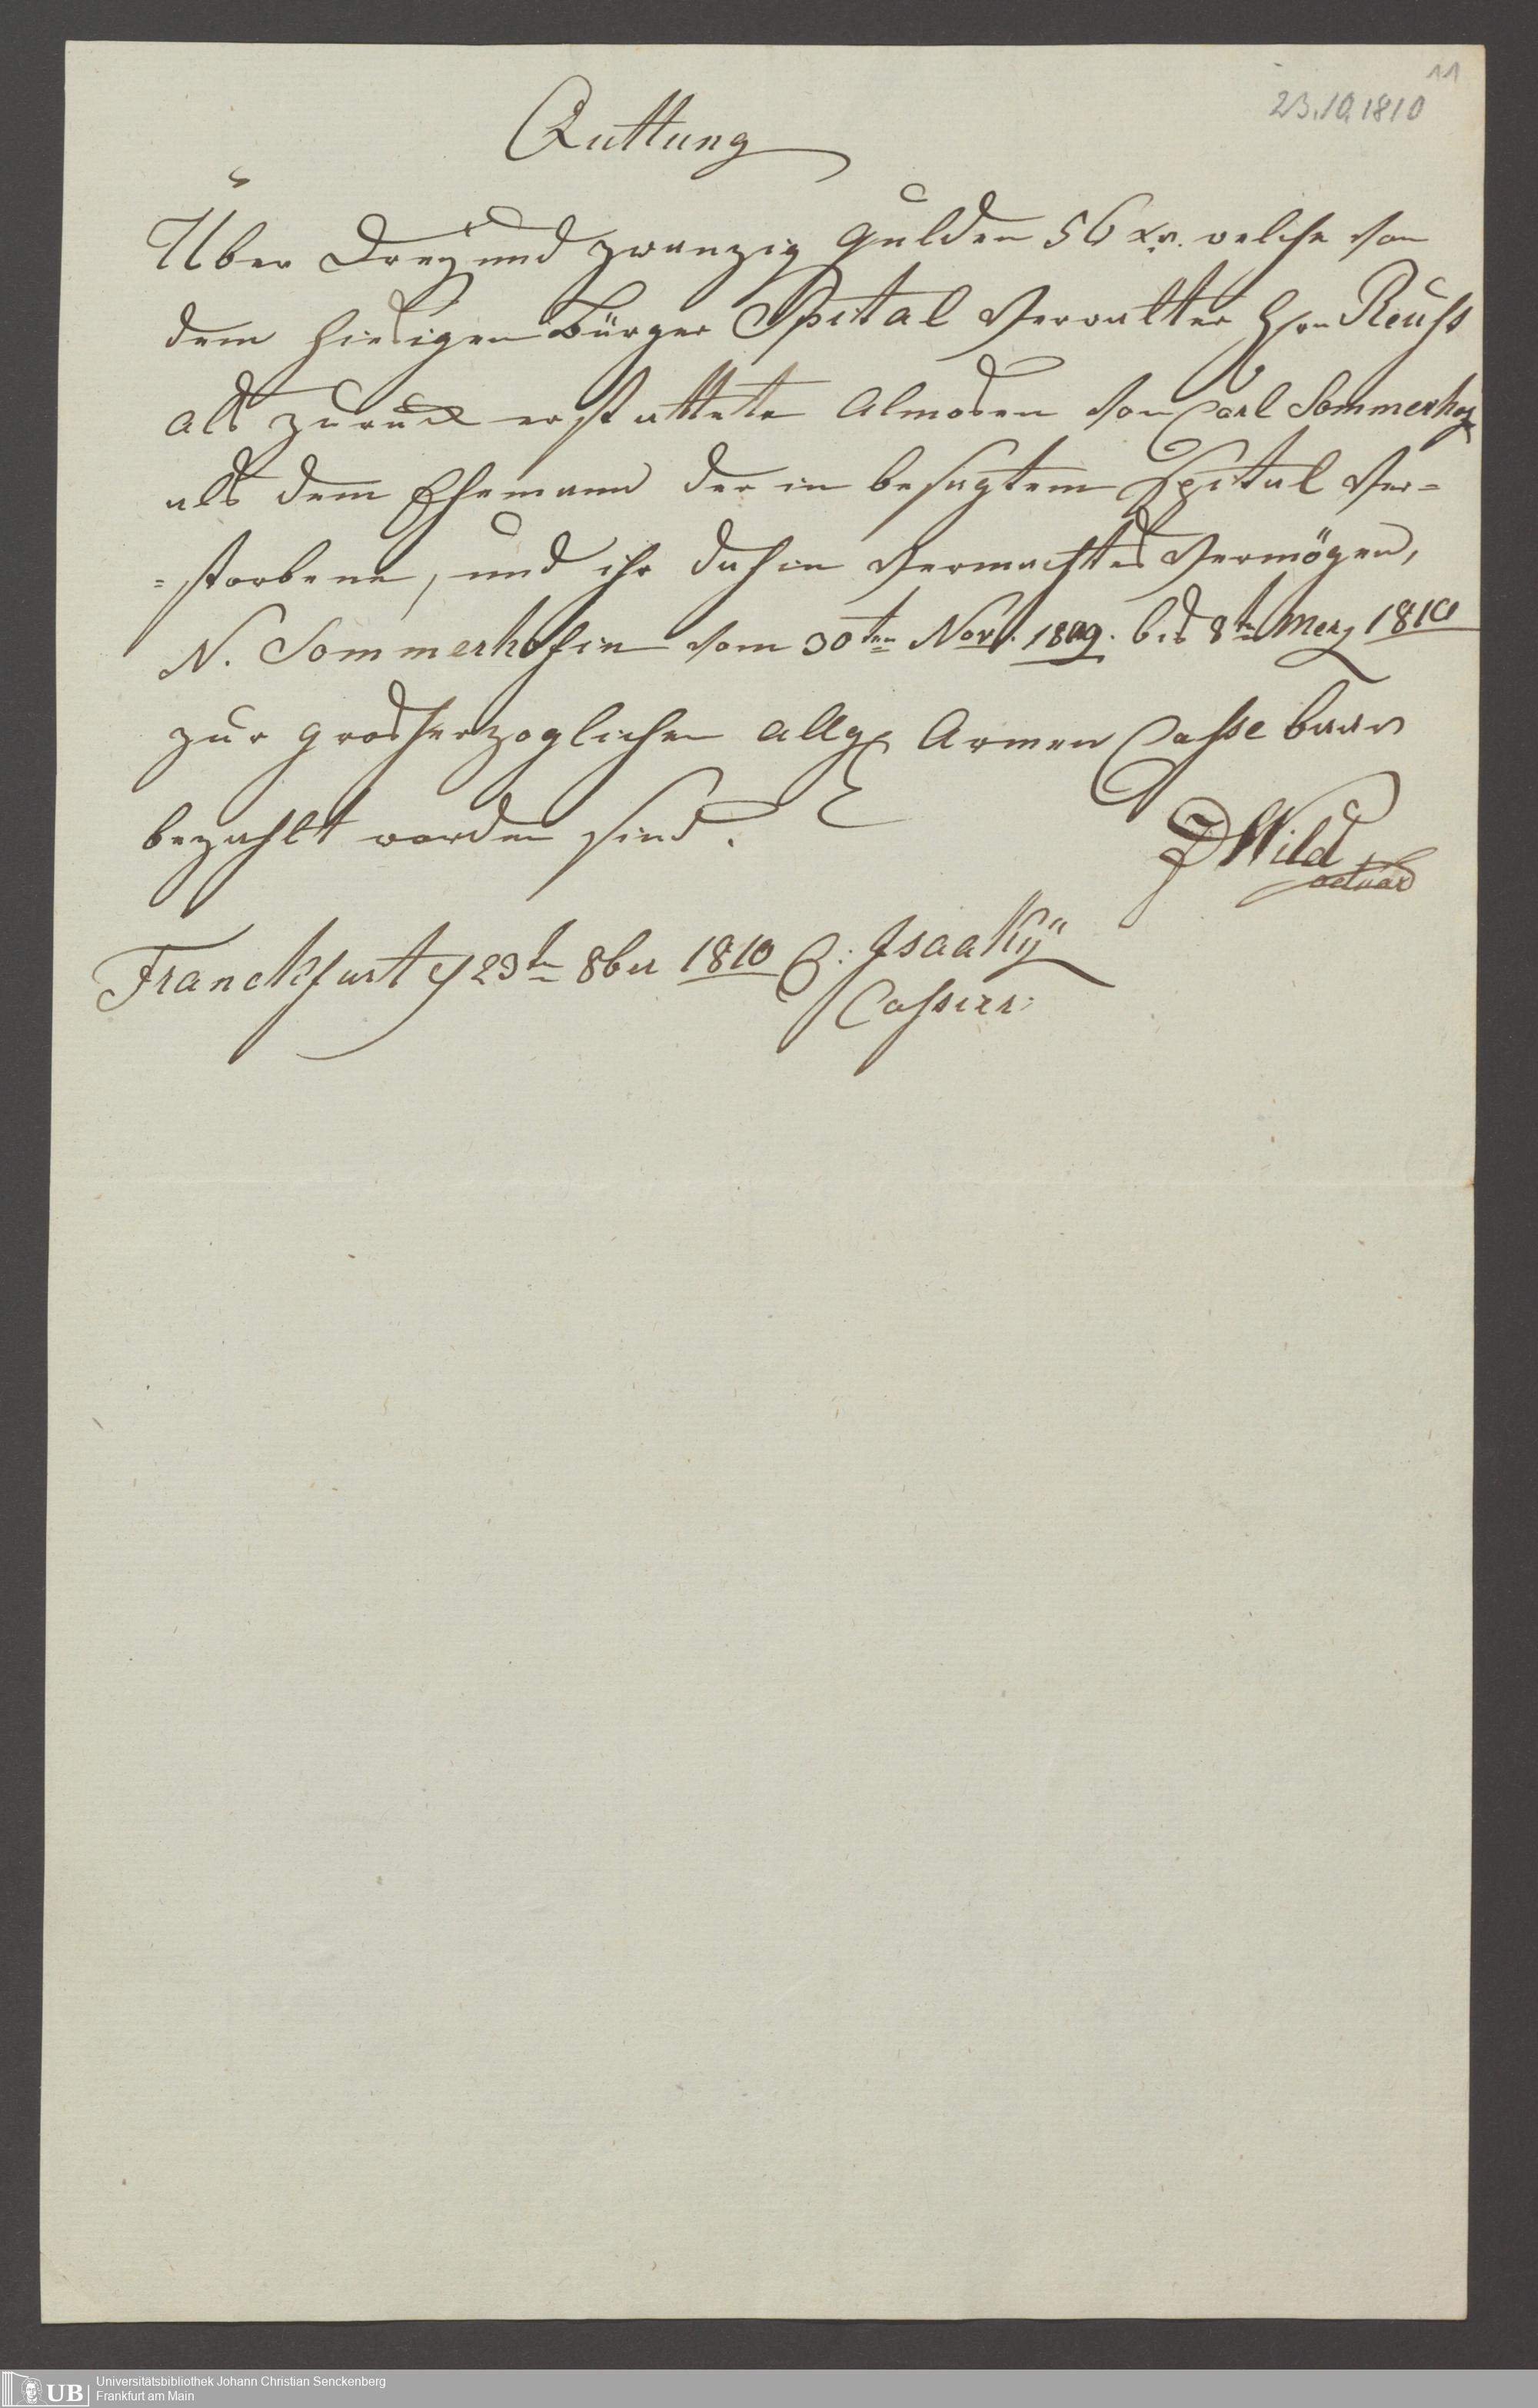 11
23.10.1810
Quittung
Über Dreÿ und zwanzig Gulden 56 xr. welche von
dem hiesigen Bürger Spital Verwalter Hrn Reuss
als zurück erstattete Almosen von Carl Sommerhof
als dem Ehemann der in besagtem Spital Ver=
=storbene, und ihr dahin Vermachtes Vermögen,
N. Sommerhofin vom 30ten Novr. 1809. bis 8ten Merz 1810
zur grosherzoglichen allg. Armen Casse baar
bezahlt worden sind.
D Wild
actuar
Franckfurt d 23ten 8ber 1810
Isaakÿ
Cassier:
UB
Universitätsbibliothek Johann Christian Senckenberg
Frankfurt am Main